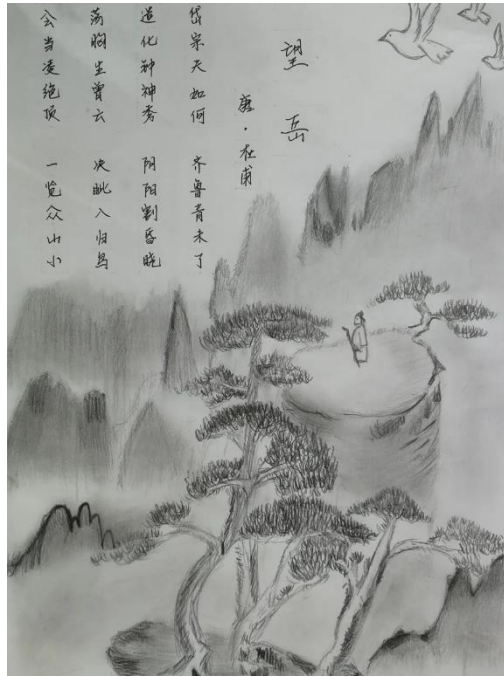 望岳
唐·杜甫
岱宗天如何 齐鲁青未了
造化钟神秀 阴阳割昏晓
荡胸生曾云 决眦入归鸟
会当凌绝顶 一览众山小